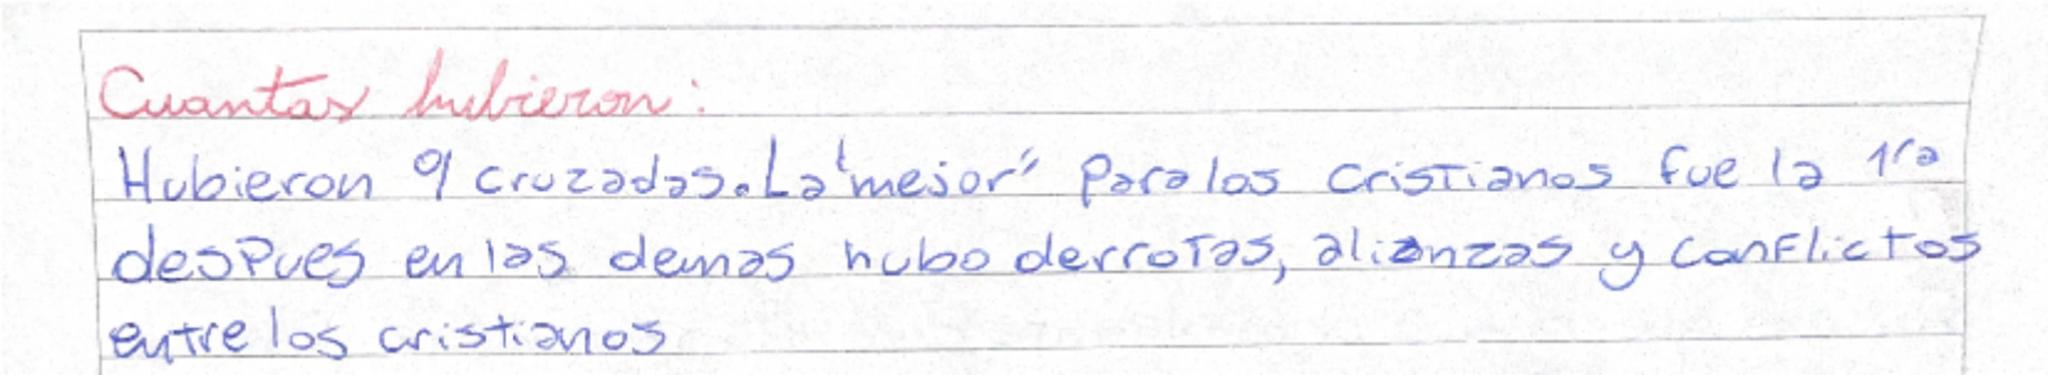 Cuantas hubieron:
Hubieron 9 cruzadas. La "mejor" para los cristianos fue la 1ra
despues en las demas hubo derrotas, alianzas y conflictos
entre los cristianos